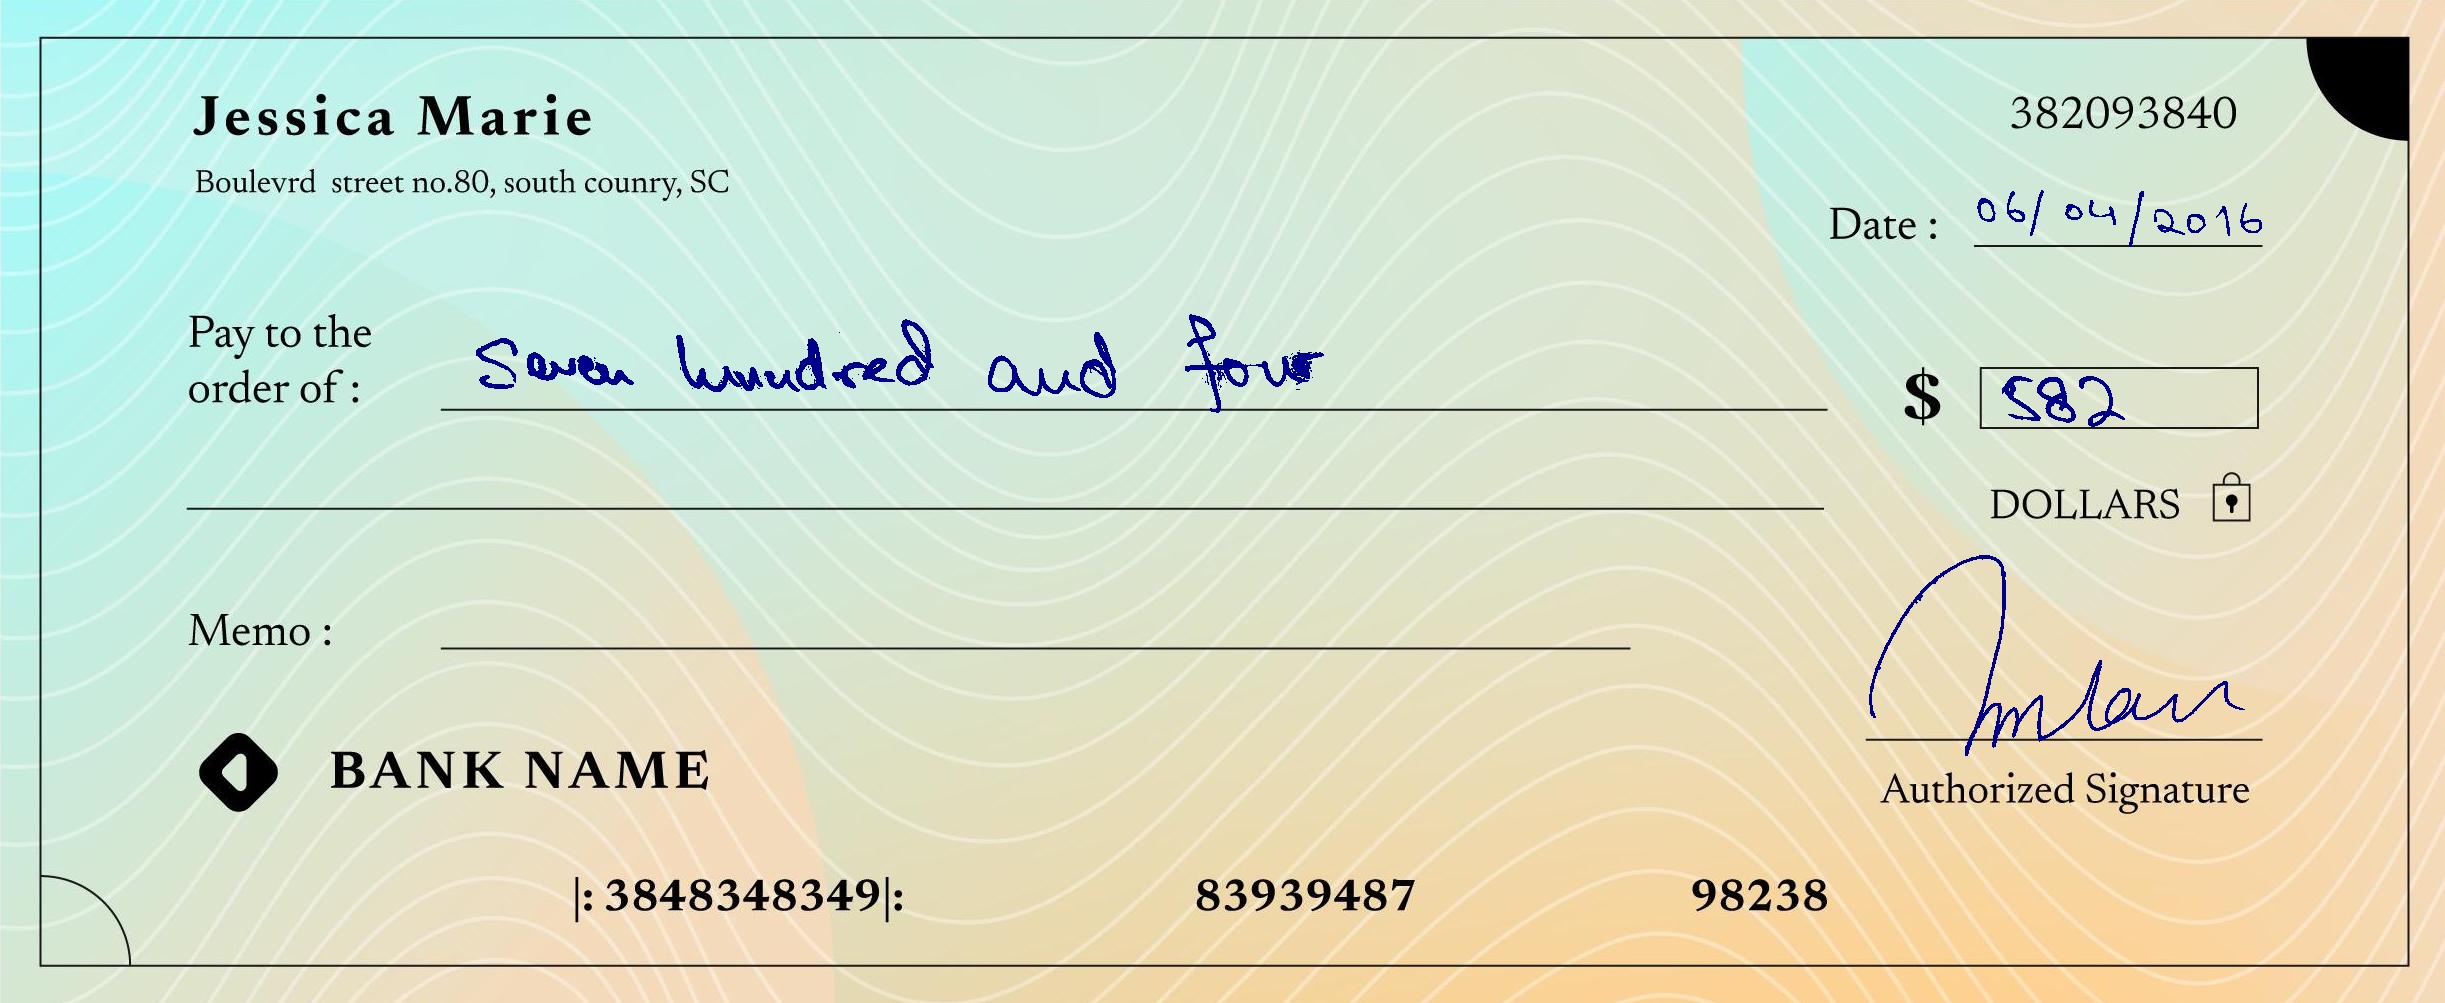 Jessica Marie
382093840
Boulevrd street no.80, south counry, SC
Date : 06/04/2016
Pay to the
order of : Seven hundred and four
$ 582
DOLLARS
Memo :
BANK NAME
Authorized Signature
|: 3848348349|: 83939487 98238